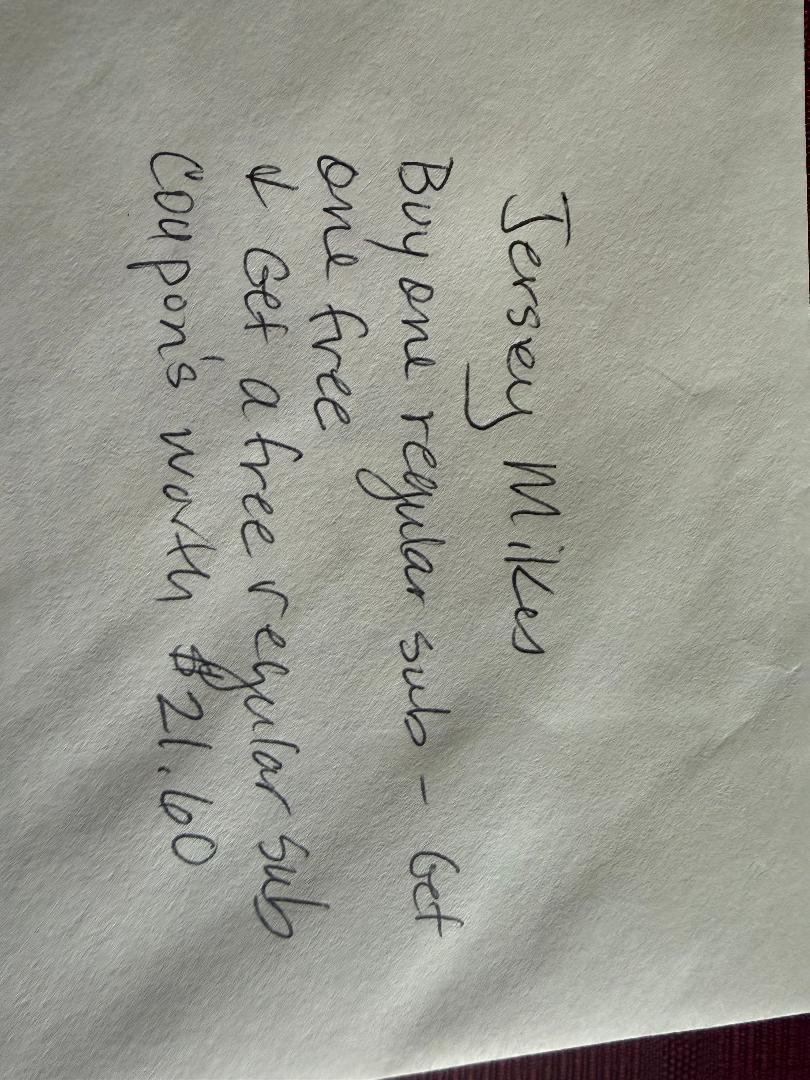 Jersey Mikes
Buy one regular sub - Get
one free
& Get a free regular sub
Coupon's worth $21.60